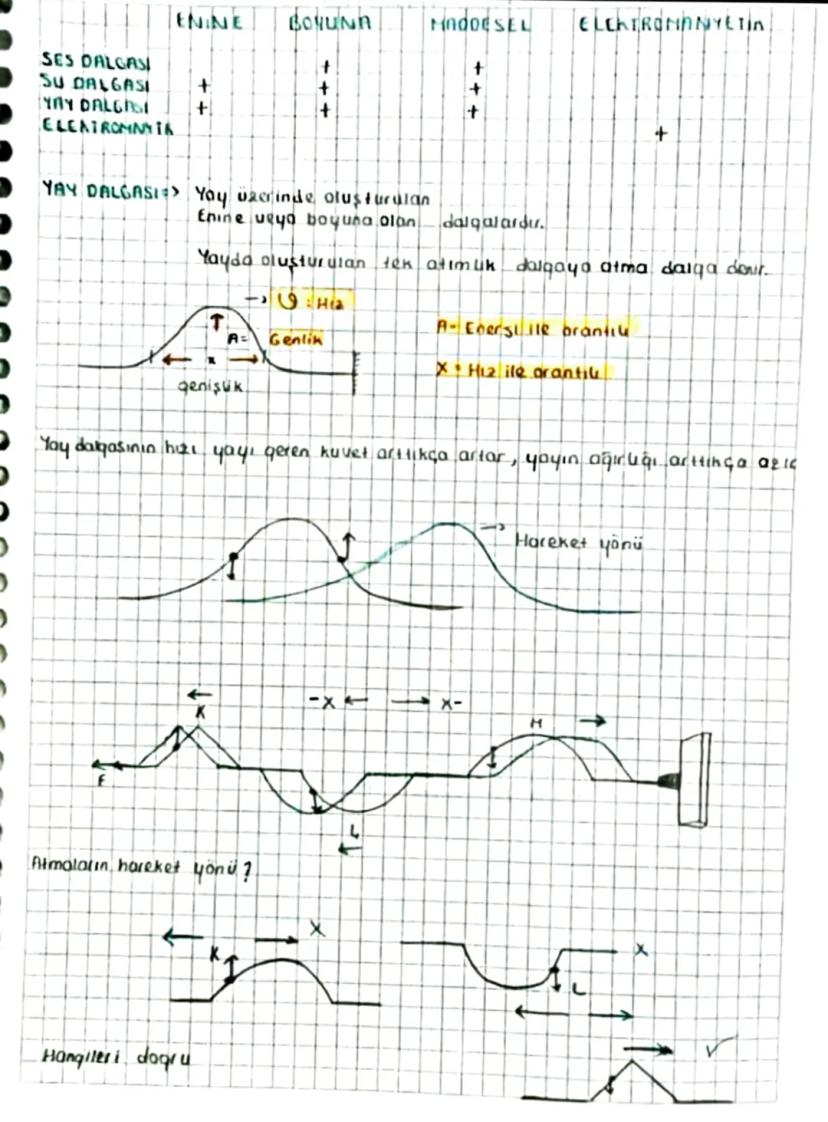 ENİNE BOYUNA MADDESEL ELEKTROMANYETİK
SES DALGASI + +
SU DALGASI + + +
YAY DALGASI + + +
ELEKTROMNYTK +
YAY DALGASI => Yay üzerinde oluşturulan
Enine veya boyuna olan dalgalardır.
Yayda oluşturulan tek atımlık dalgaya atma dalga denir.
→ ϑ : Hız
A= Genlik
A= Enerji ile orantılı
x
X = Hız ile orantılı
genişlik
Yay dalgasının hızı yayı geren kuvet arttıkça artar, yayın ağırlığı arttıkça azlı
→ Hareket yönü
← -x ← → x- M →
K
F
L
←
Atmaların hareket yönü?
← → X
K
X
L
← →
Hangileri doğru
→ √